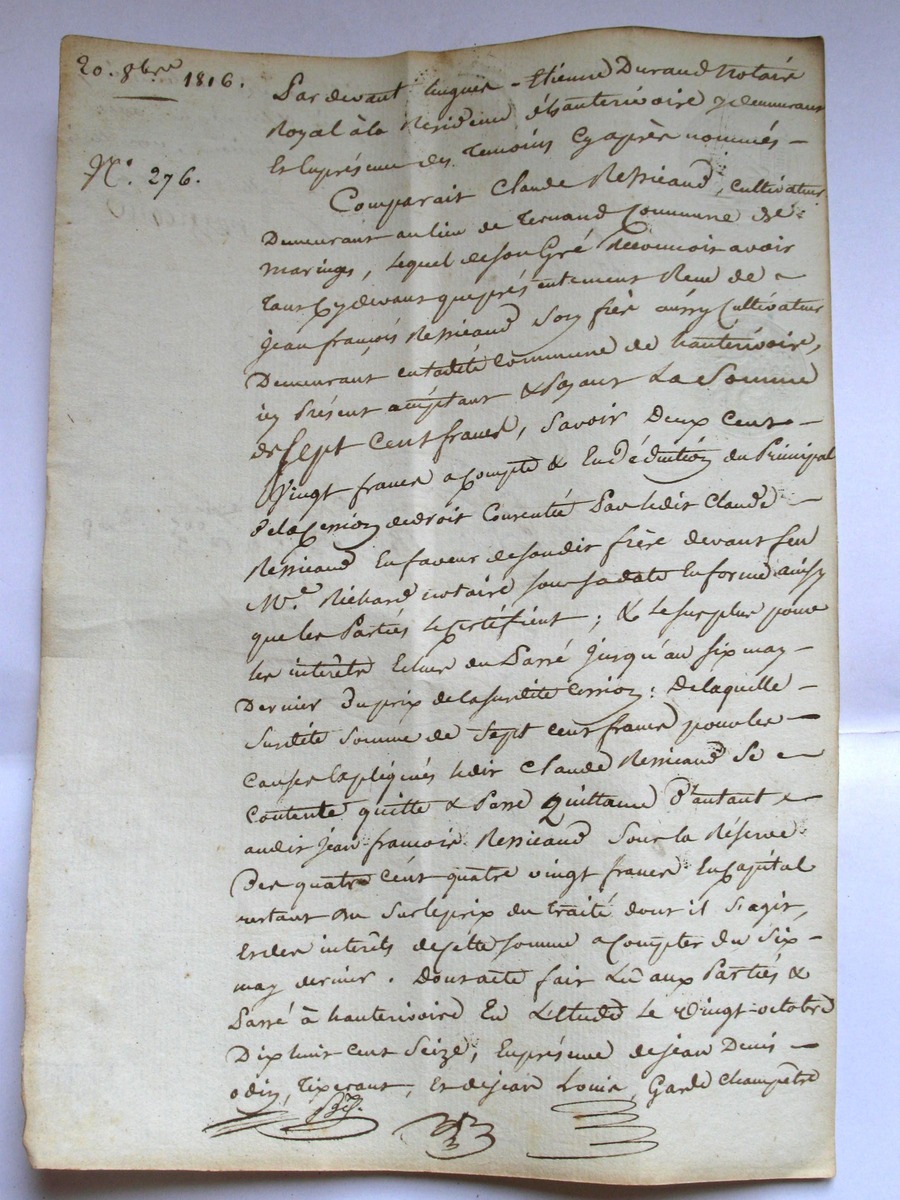 20. 8bre 1816.
N.° 276.
Pardevant hugues-Etienne Durand Notaire
Royal à la Residence d'hauterivoire y demeurant
Et En présence des Temoins Cy après nommés -
Comparait Claude Ressicaud, cultivateur
Demeurant au lieu de Ternand Commune de
maringes, Lequel de son Gré Reconnoit avoir
Tant Cy devant que présentement Recu de
jean françois Ressicaud Son frère aussy Cultivateur
Demeurant en ladite Commune de hauterivoire,
icy Présent acceptant & Payant La Somme
de Sept Cent francs, Savoir Deux Cent -
Vingt francs a Compte & En Déduction du Principal
de la Cession de droit Consentie Par ledit Claude -
Ressicaud En faveur de son dit frère devant feu
Me. Richard notaire sous sa date En forme ainsy
que les Parties Le Certifient ; & Le surplus pour
les intérêts Echus du Passé jusqu'au six may -
Dernier du prix de la susdite Cession ; De laquelle -
Susdite Somme de Sept Cent francs pour les -
Causes Expliquées ledit Claude Ressicaud Se
Contente quitte & Passe Quittance D'autant
audit jean françois Ressicaud Sous la Réserve
Des quatre Cent quatre vingt francs En Capital
restant du Sur le prix du traité dont il S'agit,
Et des intérêts de cette somme a Compter du Six -
may dernier. Dont acte fait Lu aux Parties &
Passé à hauterivoire En L'Etude Le Vingt-octobre
Dix huit cent Seize, En présence de jean Denis -
odin, Tixerant, Et de jean Louis, Garde Champêtre